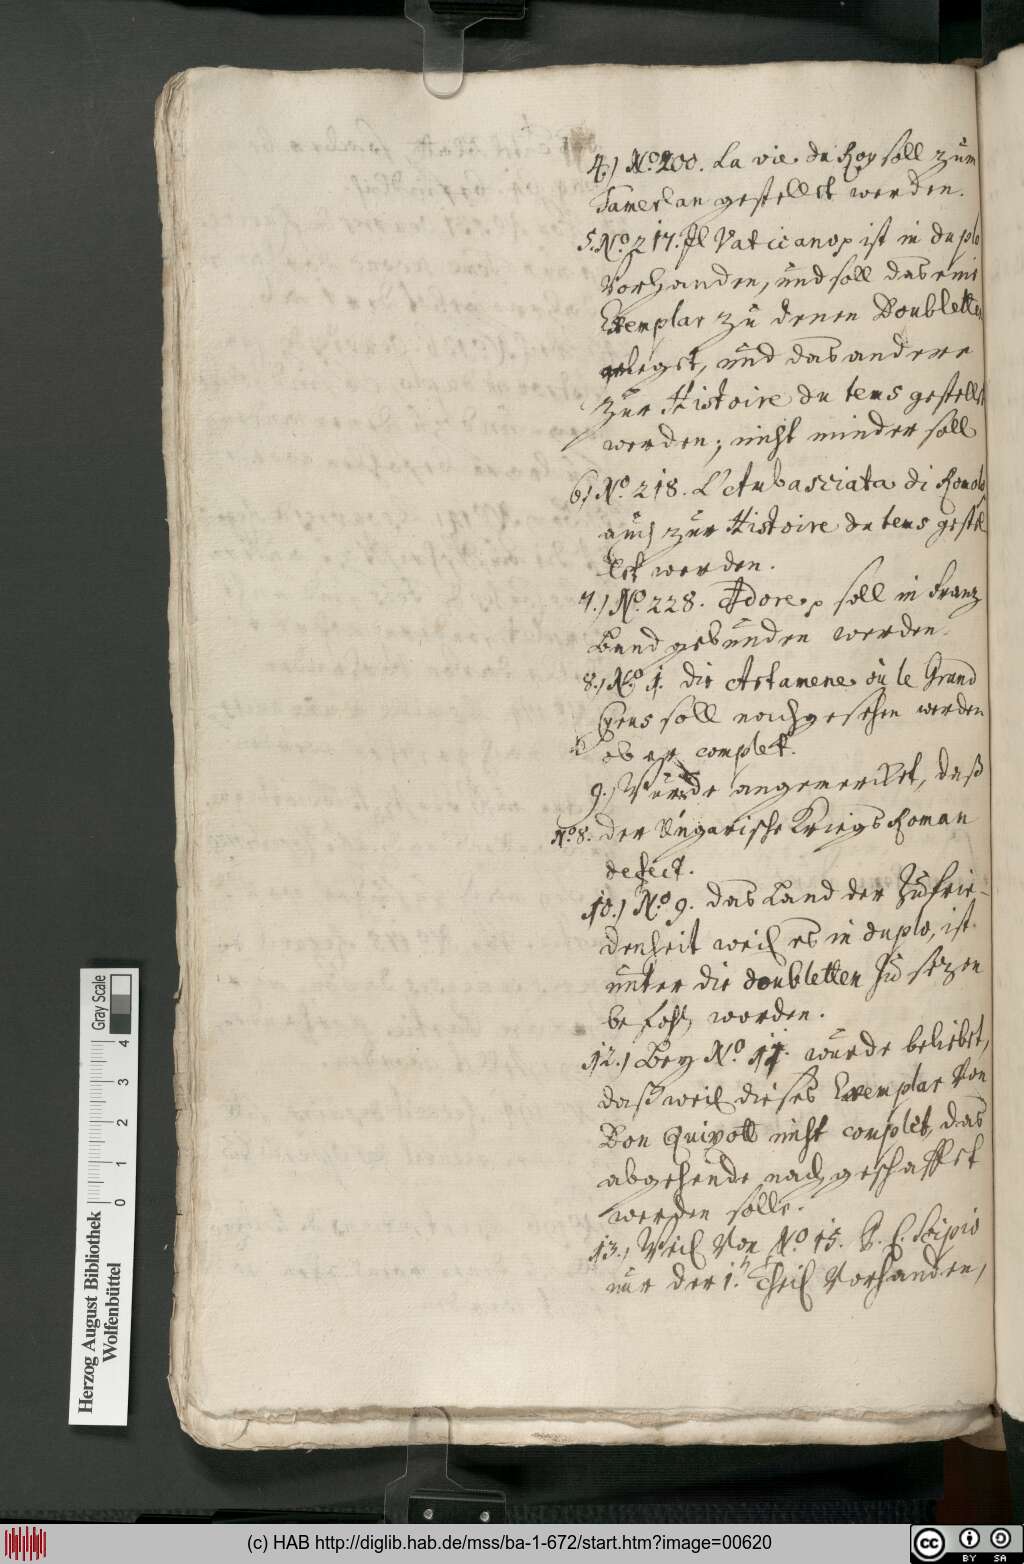 4.) No. 200. La vie du Roy soll zum
Tamerlan gestellet werden.
5. No. 217. Il Vaticano p ist in duplo
vorhanden, und soll das eine
Exemplar zu denen Doubletten
gelegt, und das andere
zur Histoire du tems gestellt
werden; nicht minder soll
6.) No. 218. L'Ambasciata di Romolo
auch zur Histoire du tems gestel
let werden.
7.) No. 228. p soll in Franz
Band gebunden werden.
8.) No. 1. die Artamene ou le Grand
Cyrus soll nachgesehen werden
ob er complet.
9.) Wurde angemercket, daß
No. 8. der Ungarische Kriegs Roman
defect.
10.) No. 9. das Land der Zufrie-
denheit weil es in duplo, ist
unter die doubletten zu sezen
befohlen worden.
12.) Bey No. 11. wurde beliebet,
daß weil dieses Exemplar von
Don Quixott nicht complet, das
abgehende nachgeschafft
werden solle.
13.) Weil von No. 15. P. C. Scipio
nur der 1. Theil vorhanden,
Gray Scale
0 1 2 3 4
Herzog August Bibliothek
Wolfenbüttel
(c) HAB http://diglib.hab.de/mss/ba-1-672/start.htm?image=00620
cc BY SA